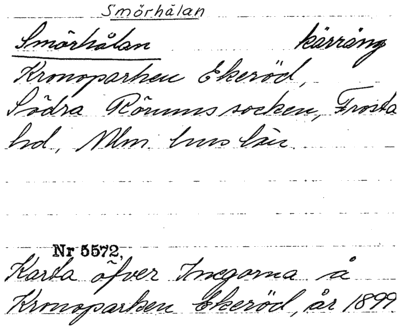 Smörhålan
Smörhålan kärräng
Kronoparken Ekeröd,
Södra Rörums socken, Frosta
hd, Mlm hus län
Nr 5572,
Karta öfver Inegorna å
Kronoparken Ekeröd, år 1899